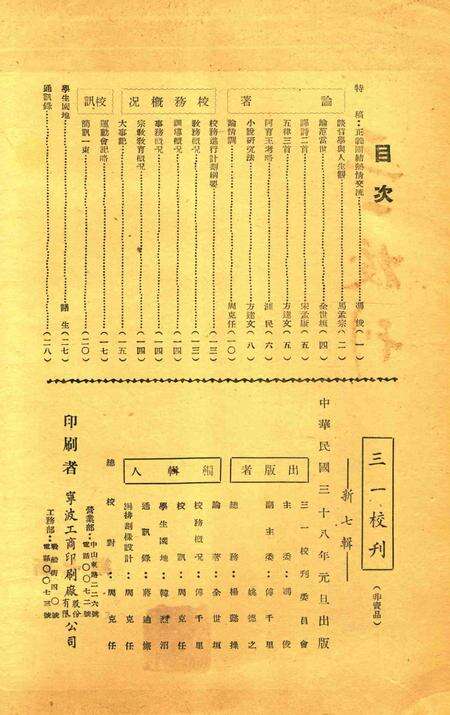 目次
特稿：正義團結熱情交流……馮俊（一）
論著
談哲學與人生觀……馬孟宗（二）
論范當世……余世垣（四）
譯詩二首……宋孟康（五）
五律三首……方達文（五）
阿育王考略……湖民（六）
小說研究法……方達文（八）
論訓……周克任（一〇）
校務概況
校務進行計劃綱要……（一三）
教務概況……（一三）
訓導概況……（一四）
事務概況……（一四）
宗教教育概況……（一四）
大事記……（一五）
校訊
運動會記略……（一七）
簡訊一束……（二〇）
學生園地……諸生（二七）
通訊錄……（二八）
三一校刊
新七輯
（非賣品）
中華民國三十八年元旦出版
出版者
三一校刊委員會
主委：馮俊
副主委：傅千里
姚德之
總務：楊懿操
編輯人
論著：余世垣
校務概況：傅千里
校訊：周克任
學生園地：韓烈沼
通訊錄：蔣迪康
編排剖樣設計：周克任
總校對：周克任
印刷者 寧波工商印刷廠股份有限公司
營業部：中山東路二二六號
電話〇〇七二號
工務部：戰船街四〇號
電話〇〇七三號